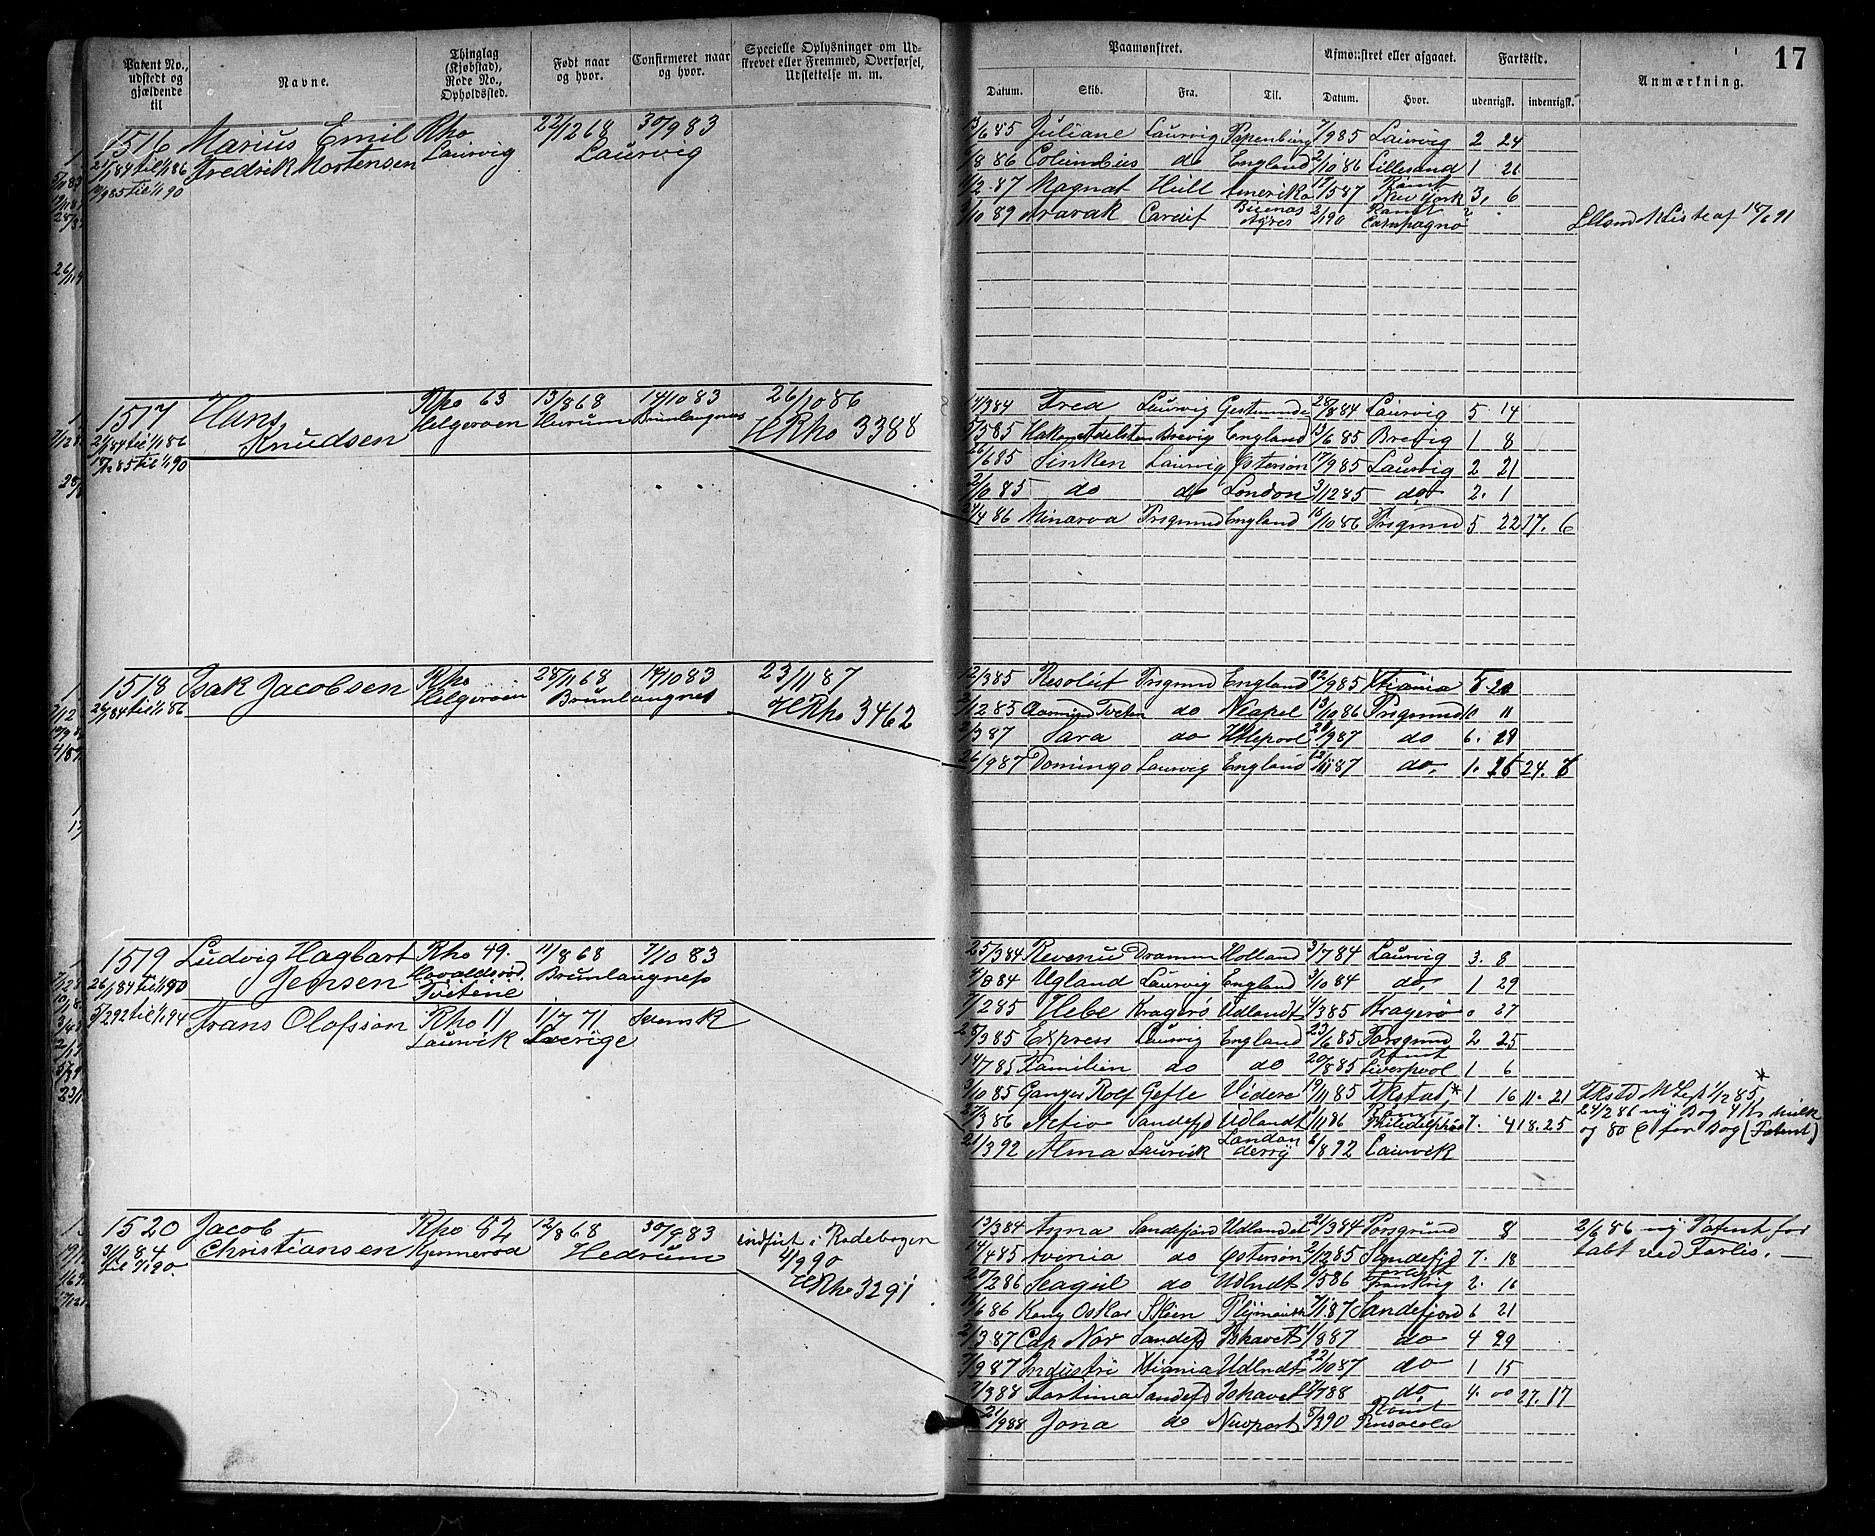 17
Patent No., udstedt og gjældende til
Navne.
Thinglag (Kjøbstad), Rode No., Opholdssted.
Født naar og hvor.
Confirmeret naar og hvor.
Specielle Oplysninger om Udskrevet eller Fremmed, Overførsel, Udslettelse m. m.
Paamønstret.
Afmønstret eller afgaaet.
Fartstid.
Anmærkning.
Datum. Skib. Fra. Til. Datum. Hvor. udenrigsk. indenrigsk.
1516 Marius Emil Rho 22/12 68 30/9 83
Fredrik Mortensen Laurvig Laurvig
21/1 84 til 1/1 86
til 1/1 90
13/6 85 Juliane Laurvig Papenburg 7/9 85 Laurvig 2 24
8 86 Columbus do England 2/10 86 Lillesand 1 26
2 87 Magnat Hull Amerika 17/5 87 Rømt New York 3, 6
10 89 Aravak Cardif Buenos Ayres 2/1 90 Rømt
1517 Hans Rho 63 13/8 68 14/10 83 26/10 86
Knudsen Helgeroen Hurum Brunlangnes HRho 3388
21/1 84 til 1/1 86
85 til 1/1 90
14/3 84 Frea Laurvig 28/8 84 Laurvig 5 14
5/5 85 Hakon Adelsten Brevig England 13/6 85 Brevig 1 8
26/6 85 Sinken Laurvig Østersøn 17/9 85 Laurvig 2 21
2/10 85 do do London 3/12 85 do 2. 1
4 86 Minarva Prsgrund England 16/10 86 Prsgrund 5 22 17. 6
1518 Isak Jacobsen Rho 28/11 68 14/10 83 23/11 87
26/1 84 til 1/1 86 Helgeroen Brunlangnes HRho 3462
12/3 85 Resolut Prsgrund England 12/9 85 Xtiania 5. 20
2/12 85 do Neapel 13/10 86 Prsgrund 10 11
2/3 87 Sara do Htlepool 9 87 do 6. 19
26/9 87 Domingo Laurvig England 12/11 87 do. 1. 24.
1519 Ludvig Hagbart Rho 49. 11/8 68 7/10 83
Jensen Havaldsrød Brunlangnes
Tvetene
26/1 84 til 1/1 90
3/2 92 til 1/1 94
Frans Olofsson Rho 11 1/7 71 Svensk
Laurvik Sverige
25/3 84 Revenu Dramm Holland 3/7 84 Laurvig 3. 8
4/8 84 Ugland Laurvig England 3/10 84 do. 1 29
7/2 85 Hebe Kragerø Udlandt 4/3 85 Kragerø 0 27
28/3 85 Express Laurvig England 23/6 85 Porsgrund 2 25
14/7 85 Familien do do 20/8 85 Rømt Liverpool 1 6
3/10 85 Ganger Rolf Gefle Videre 19/11 85 Fkstad * 1 16 11. 21
3 86 Aktiv Sandefjd Udlandt 1/11 86 Rømt Philidelphia 7. 4 18. 25
21/3 92 Alma Laurvik Landan derry 6/8 92 Laurvik
*
Fkstd MList 1/12 85,
24/2 86 ny Bog 4 Kr mulk
og 80 Ø for Bog (Patent)
1520 Jacob Rho 82 12/8 68 30/9 83 indført i Rodebogen
Christiansen Hedrum 4/9 90
3/1 84 HRho 3291
til 1/1 90.
13/3 84 Anna Sandefjord Udlandet 21/3 84 Porsgrund 8
14/4 85 Avinia do Østersøn 2/12 85 Sandefjd 7. 18
20/2 86 Seagul do Udlndt 6/5 86 Forlist Frankrig 2. 16
6 86 Kong Oskar Skien Plymouth 7/1 87 Sandefjord 6 21
2/3 87 Cap Nor Sandefjd Ishavet 1/8 87 do 4 29
7/9 87 Industri Xtiania Udlndt 22/10 87 do 1 15
7/3 88 Fortuna Sandefjd Ishavet 7 88 do 4. 00 27. 17
21/9 88 Jona do Newport 8/3 90 Rømt Pensacola
2/6 86 ny Patent for
tabt ved Forlis. —